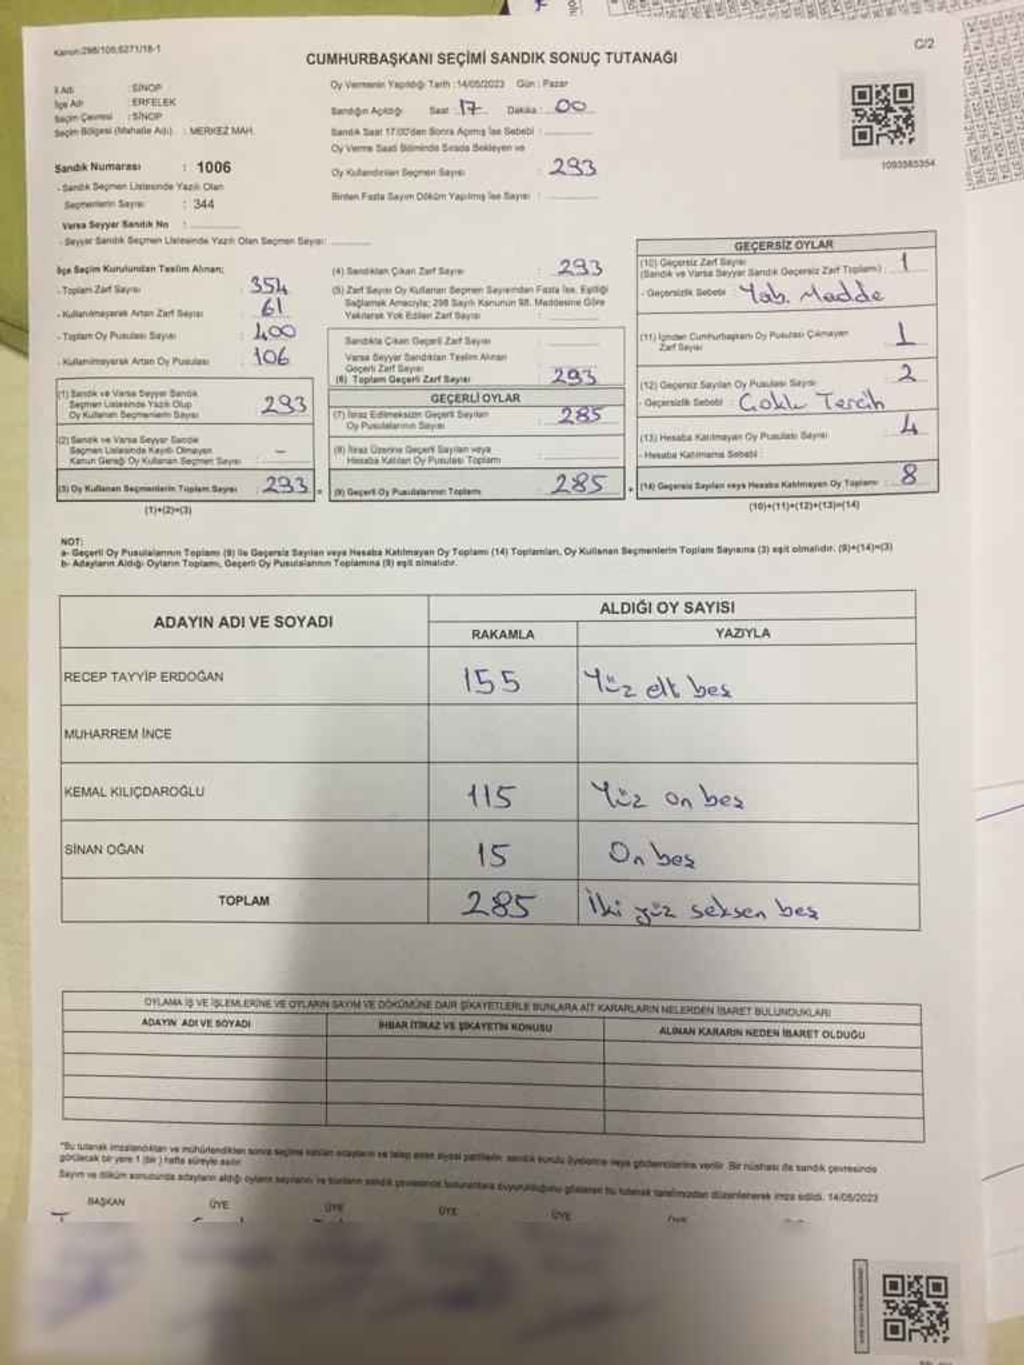 Kanun:298/105,6271/18-1
C/2
CUMHURBAŞKANI SEÇİMİ SANDIK SONUÇ TUTANAĞI
İl Adı : SİNOP
İlçe Adı : ERFELEK
Seçim Çevresi : SİNOP
Seçim Bölgesi (Mahalle Adı) : MERKEZ MAH.
Sandık Numarası : 1006
- Sandık Seçmen Listesinde Yazılı Olan
Seçmenlerin Sayısı : 344
Varsa Seyyar Sandık No :
- Seyyar Sandık Seçmen Listesinde Yazılı Olan Seçmen Sayısı:
Oy Vermenin Yapıldığı Tarih :14/05/2023 Gün : Pazar
Sandığın Açıldığı Saat : 17 Dakika : 00
Sandık Saat 17:00'den Sonra Açılmış İse Sebebi :
Oy Verme Saati Bitiminde Sırada Bekleyen ve
Oy Kullandırılan Seçmen Sayısı : 293
Birden Fazla Sayım Döküm Yapılmış İse Sayısı :
1093585354
İlçe Seçim Kurulundan Teslim Alınan;
- Toplam Zarf Sayısı : 354
- Kullanılmayarak Artan Zarf Sayısı : 61
- Toplam Oy Pusulası Sayısı : 400
- Kullanılmayarak Artan Oy Pusulası : 106
(1) Sandık ve Varsa Seyyar Sandık
Seçmen Listesinde Yazılı Olup
Oy Kullanan Seçmenlerin Sayısı : 293
(2) Sandık ve Varsa Seyyar Sandık
Seçmen Listesinde Kayıtlı Olmayan
Kanun Gereği Oy Kullanan Seçmen Sayısı : -
(3) Oy Kullanan Seçmenlerin Toplam Sayısı : 293
(1)+(2)=(3)
(4) Sandıktan Çıkan Zarf Sayısı : 293
(5) Zarf Sayısı Oy Kullanan Seçmen Sayısından Fazla İse, Eşitliği
Sağlamak Amacıyla; 298 Sayılı Kanunun 98. Maddesine Göre
Yakılarak Yok Edilen Zarf Sayısı :
Sandıkta Çıkan Geçerli Zarf Sayısı :
Varsa Seyyar Sandıktan Teslim Alınan
Geçerli Zarf Sayısı :
(6) Toplam Geçerli Zarf Sayısı : 293
GEÇERLİ OYLAR
(7) İtiraz Edilmeksizin Geçerli Sayılan
Oy Pusulalarının Sayısı : 285
(8) İtiraz Üzerine Geçerli Sayılan veya
Hesaba Katılan Oy Pusulası Toplamı :
(9) Geçerli Oy Pusulalarının Toplamı : 285
GEÇERSİZ OYLAR
(10) Geçersiz Zarf Sayısı
(Sandık ve Varsa Seyyar Sandık Geçersiz Zarf Toplamı) : 1
- Geçersizlik Sebebi : Yab. Madde
(11) İçinden Cumhurbaşkanı Oy Pusulası Çıkmayan
Zarf Sayısı : 1
(12) Geçersiz Sayılan Oy Pusulası Sayısı : 2
- Geçersizlik Sebebi : Çoklu Tercih
(13) Hesaba Katılmayan Oy Pusulası Sayısı : 4
- Hesaba Katılmama Sebebi :
(14) Geçersiz Sayılan veya Hesaba Katılmayan Oy Toplamı : 8
(10)+(11)+(12)+(13)=(14)
NOT:
a- Geçerli Oy Pusulalarının Toplamı (9) ile Geçersiz Sayılan veya Hesaba Katılmayan Oy Toplamı (14) Toplamları, Oy Kullanan Seçmenlerin Toplam Sayısına (3) eşit olmalıdır. (9)+(14)=(3)
b- Adayların Aldığı Oyların Toplamı, Geçerli Oy Pusulalarının Toplamına (9) eşit olmalıdır.
ADAYIN ADI VE SOYADI
ALDIĞI OY SAYISI
RAKAMLA YAZIYLA
RECEP TAYYİP ERDOĞAN 155 Yüz elli beş
MUHARREM İNCE
KEMAL KILIÇDAROĞLU 115 Yüz on beş
SİNAN OĞAN 15 On beş
TOPLAM 285 İki yüz seksen beş
OYLAMA İŞ VE İŞLEMLERİNE VE OYLARIN SAYIM VE DÖKÜMÜNE DAİR ŞİKAYETLERLE BUNLARA AİT KARARLARIN NELERDEN İBARET BULUNDUKLARI
ADAYIN ADI VE SOYADI İHBAR İTİRAZ VE ŞİKAYETİN KONUSU ALINAN KARARIN NEDEN İBARET OLDUĞU
"Bu tutanak imzalandıktan ve mühürlendikten sonra seçime katılan adayların ve talep eden siyasi partilerin sandık kurulu üyelerine veya gözlemcilerine verilir. Bir nüshası da sandık çevresinde
görülecek bir yere 1 (bir) hafta süreyle asılır.
Sayım ve döküm sonucunda adayların aldığı oyların sayılarını ve bunların sandık çevresinde bulunanlara duyurulduğunu gösteren bu tutanak tarafımızdan düzenlenerek imza edildi. 14/05/2023
BAŞKAN ÜYE ÜYE ÜYE ÜYE ÜYE